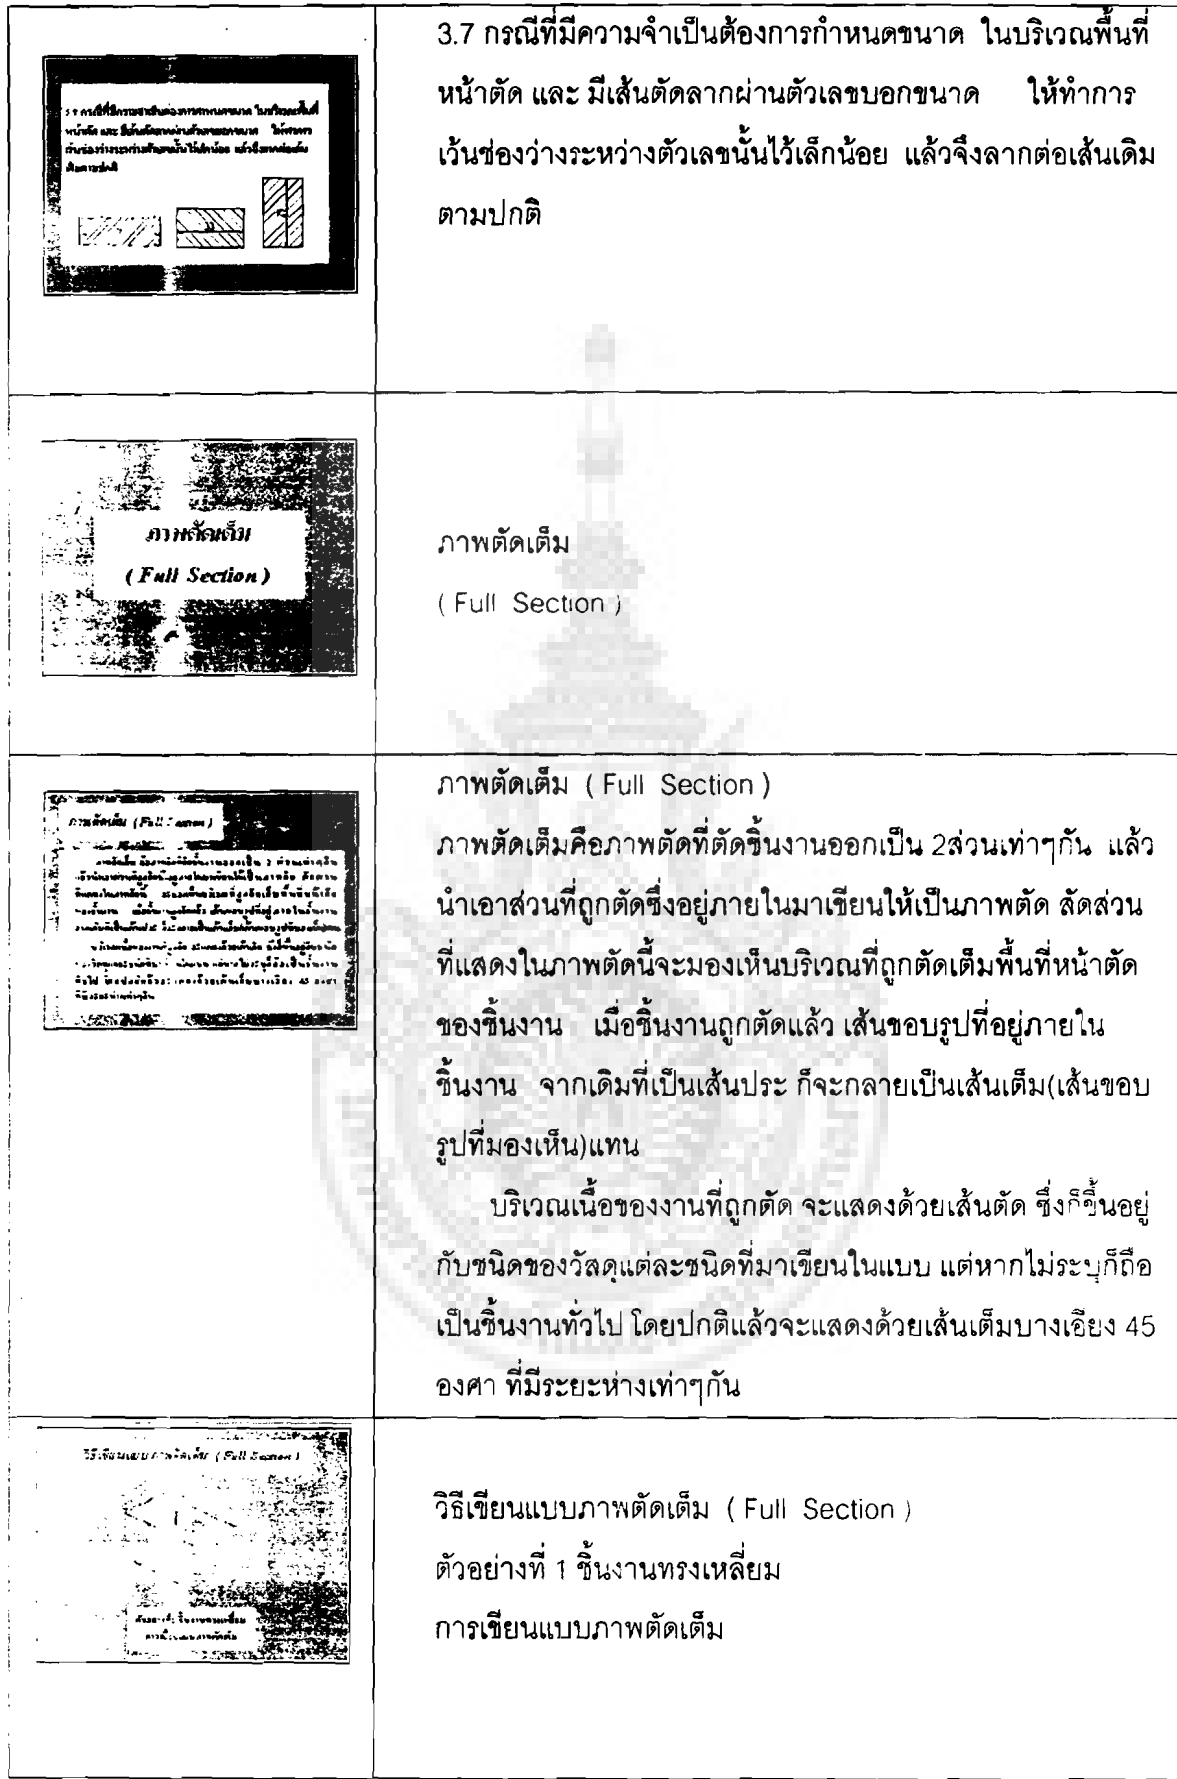 3.7 กรณีที่มีความจำเป็นต้องการกำหนดขนาด ในบริเวณพื้นที่
หน้าตัด และ มีเส้นตัดลากผ่านตัวเลขบอกขนาด ให้ทำการ
เว้นช่องว่างระหว่างตัวเลขนั้นไว้เล็กน้อย แล้วจึงลากต่อเส้นเดิม
ตามปกติ
ภาพตัดเต็ม
( Full Section )
ภาพตัดเต็ม
( Full Section )
ภาพตัดเต็ม ( Full Section )
ภาพตัดเต็มคือภาพตัดที่ตัดชิ้นงานออกเป็น 2ส่วนเท่าๆกัน แล้ว
นำเอาส่วนที่ถูกตัดซึ่งอยู่ภายในมาเขียนให้เป็นภาพตัด สัดส่วน
ที่แสดงในภาพตัดนี้จะมองเห็นบริเวณที่ถูกตัดเต็มพื้นที่หน้าตัด
ของชิ้นงาน เมื่อชิ้นงานถูกตัดแล้ว เส้นขอบรูปที่อยู่ภายใน
ชิ้นงาน จากเดิมที่เป็นเส้นประ ก็จะกลายเป็นเส้นเต็ม(เส้นขอบ
รูปที่มองเห็น)แทน
บริเวณเนื้อของงานที่ถูกตัด จะแสดงด้วยเส้นตัด ซึ่งก็ขึ้นอยู่
กับชนิดของวัสดุแต่ละชนิดที่มาเขียนในแบบ แต่หากไม่ระบุก็ถือ
เป็นชิ้นงานทั่วไป โดยปกติแล้วจะแสดงด้วยเส้นเต็มบางเอียง 45
องศา ที่มีระยะห่างเท่าๆกัน
วิธีเขียนแบบภาพตัดเต็ม ( Full Section )
วิธีเขียนแบบภาพตัดเต็ม ( Full Section )
ตัวอย่างที่ 1 ชิ้นงานทรงเหลี่ยม
การเขียนแบบภาพตัดเต็ม